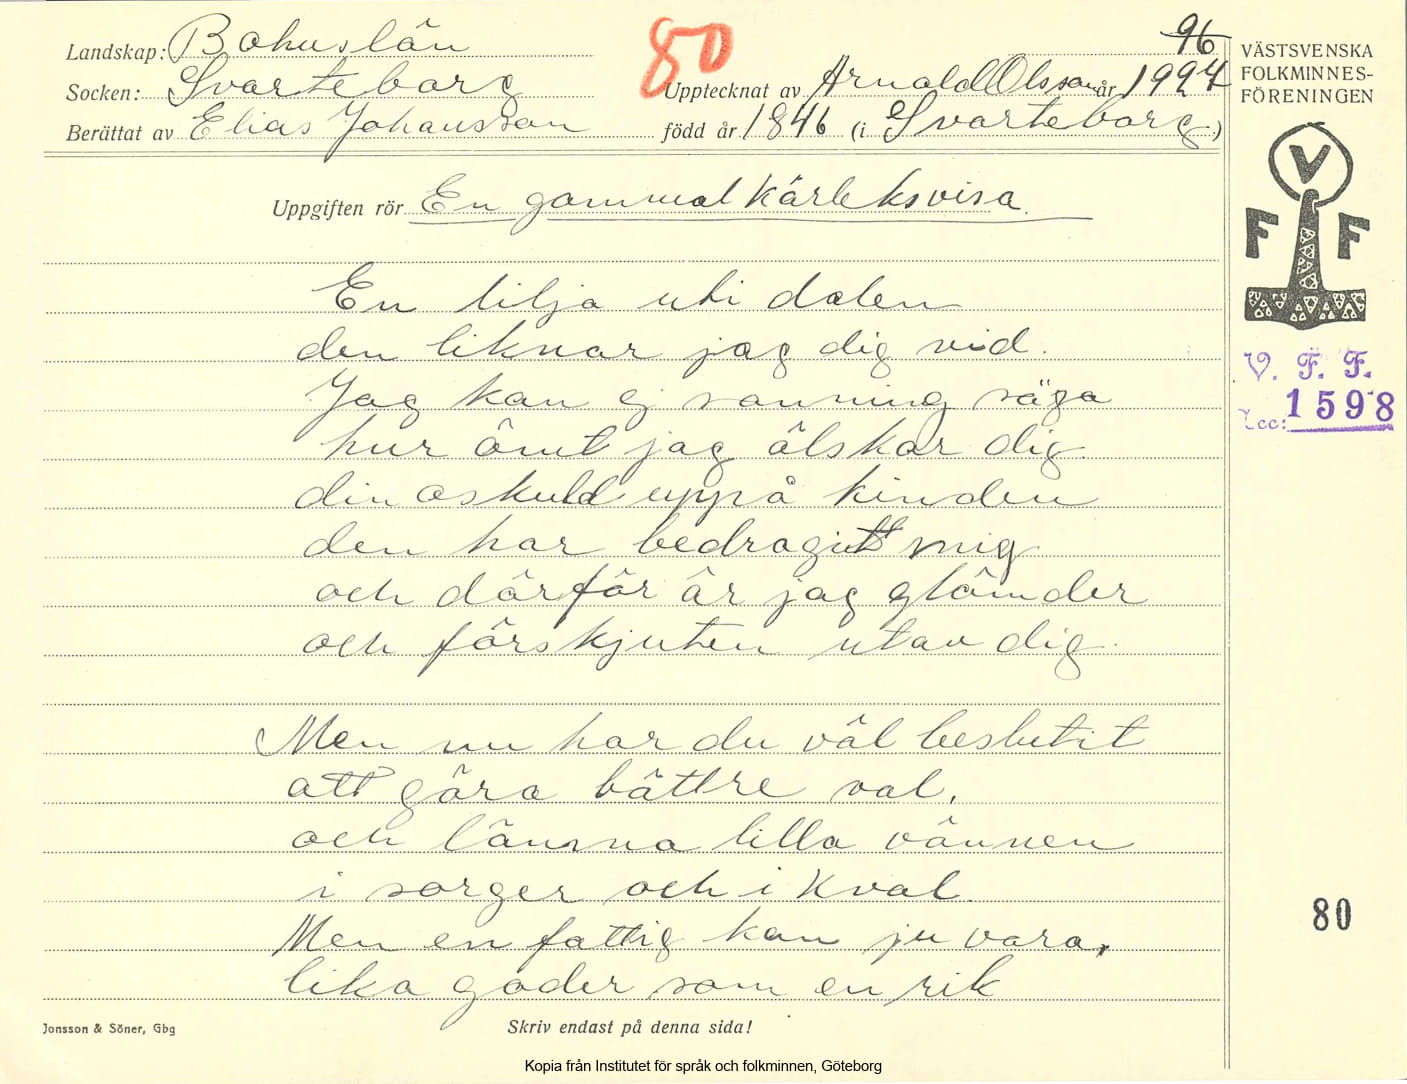 Landskap: Bohuslän
Socken: Svarteborg
Berättat av Elias Johansson
80
96
Upptecknat av Arnold Olsson år 1927
född år 1846 (i Svarteborg)
VÄSTSVENSKA
FOLKMINNES-
FÖRENINGEN
V
F F
Uppgiften rör En gammal kärleksvisa.
V. F. F.
Acc: 1598
En lilja uti dalen
den liknar jag dig vid.
Jag kan ej sanning säga
hur ömt jag älskar dig.
din oskuld uppå kinden
den har bedragitt mig
och därför är jag glömder
och förskjuten utav dig.
Men nu har du väl beslutit
att göra bättre val,
och lämna lilla vännen
i sorger och i kval.
Men en fattig kan ju vara,
lika goder som en rik
80
Jonsson & Söner, Gbg
Skriv endast på denna sida!
Kopia från Institutet för språk och folkminnen, Göteborg